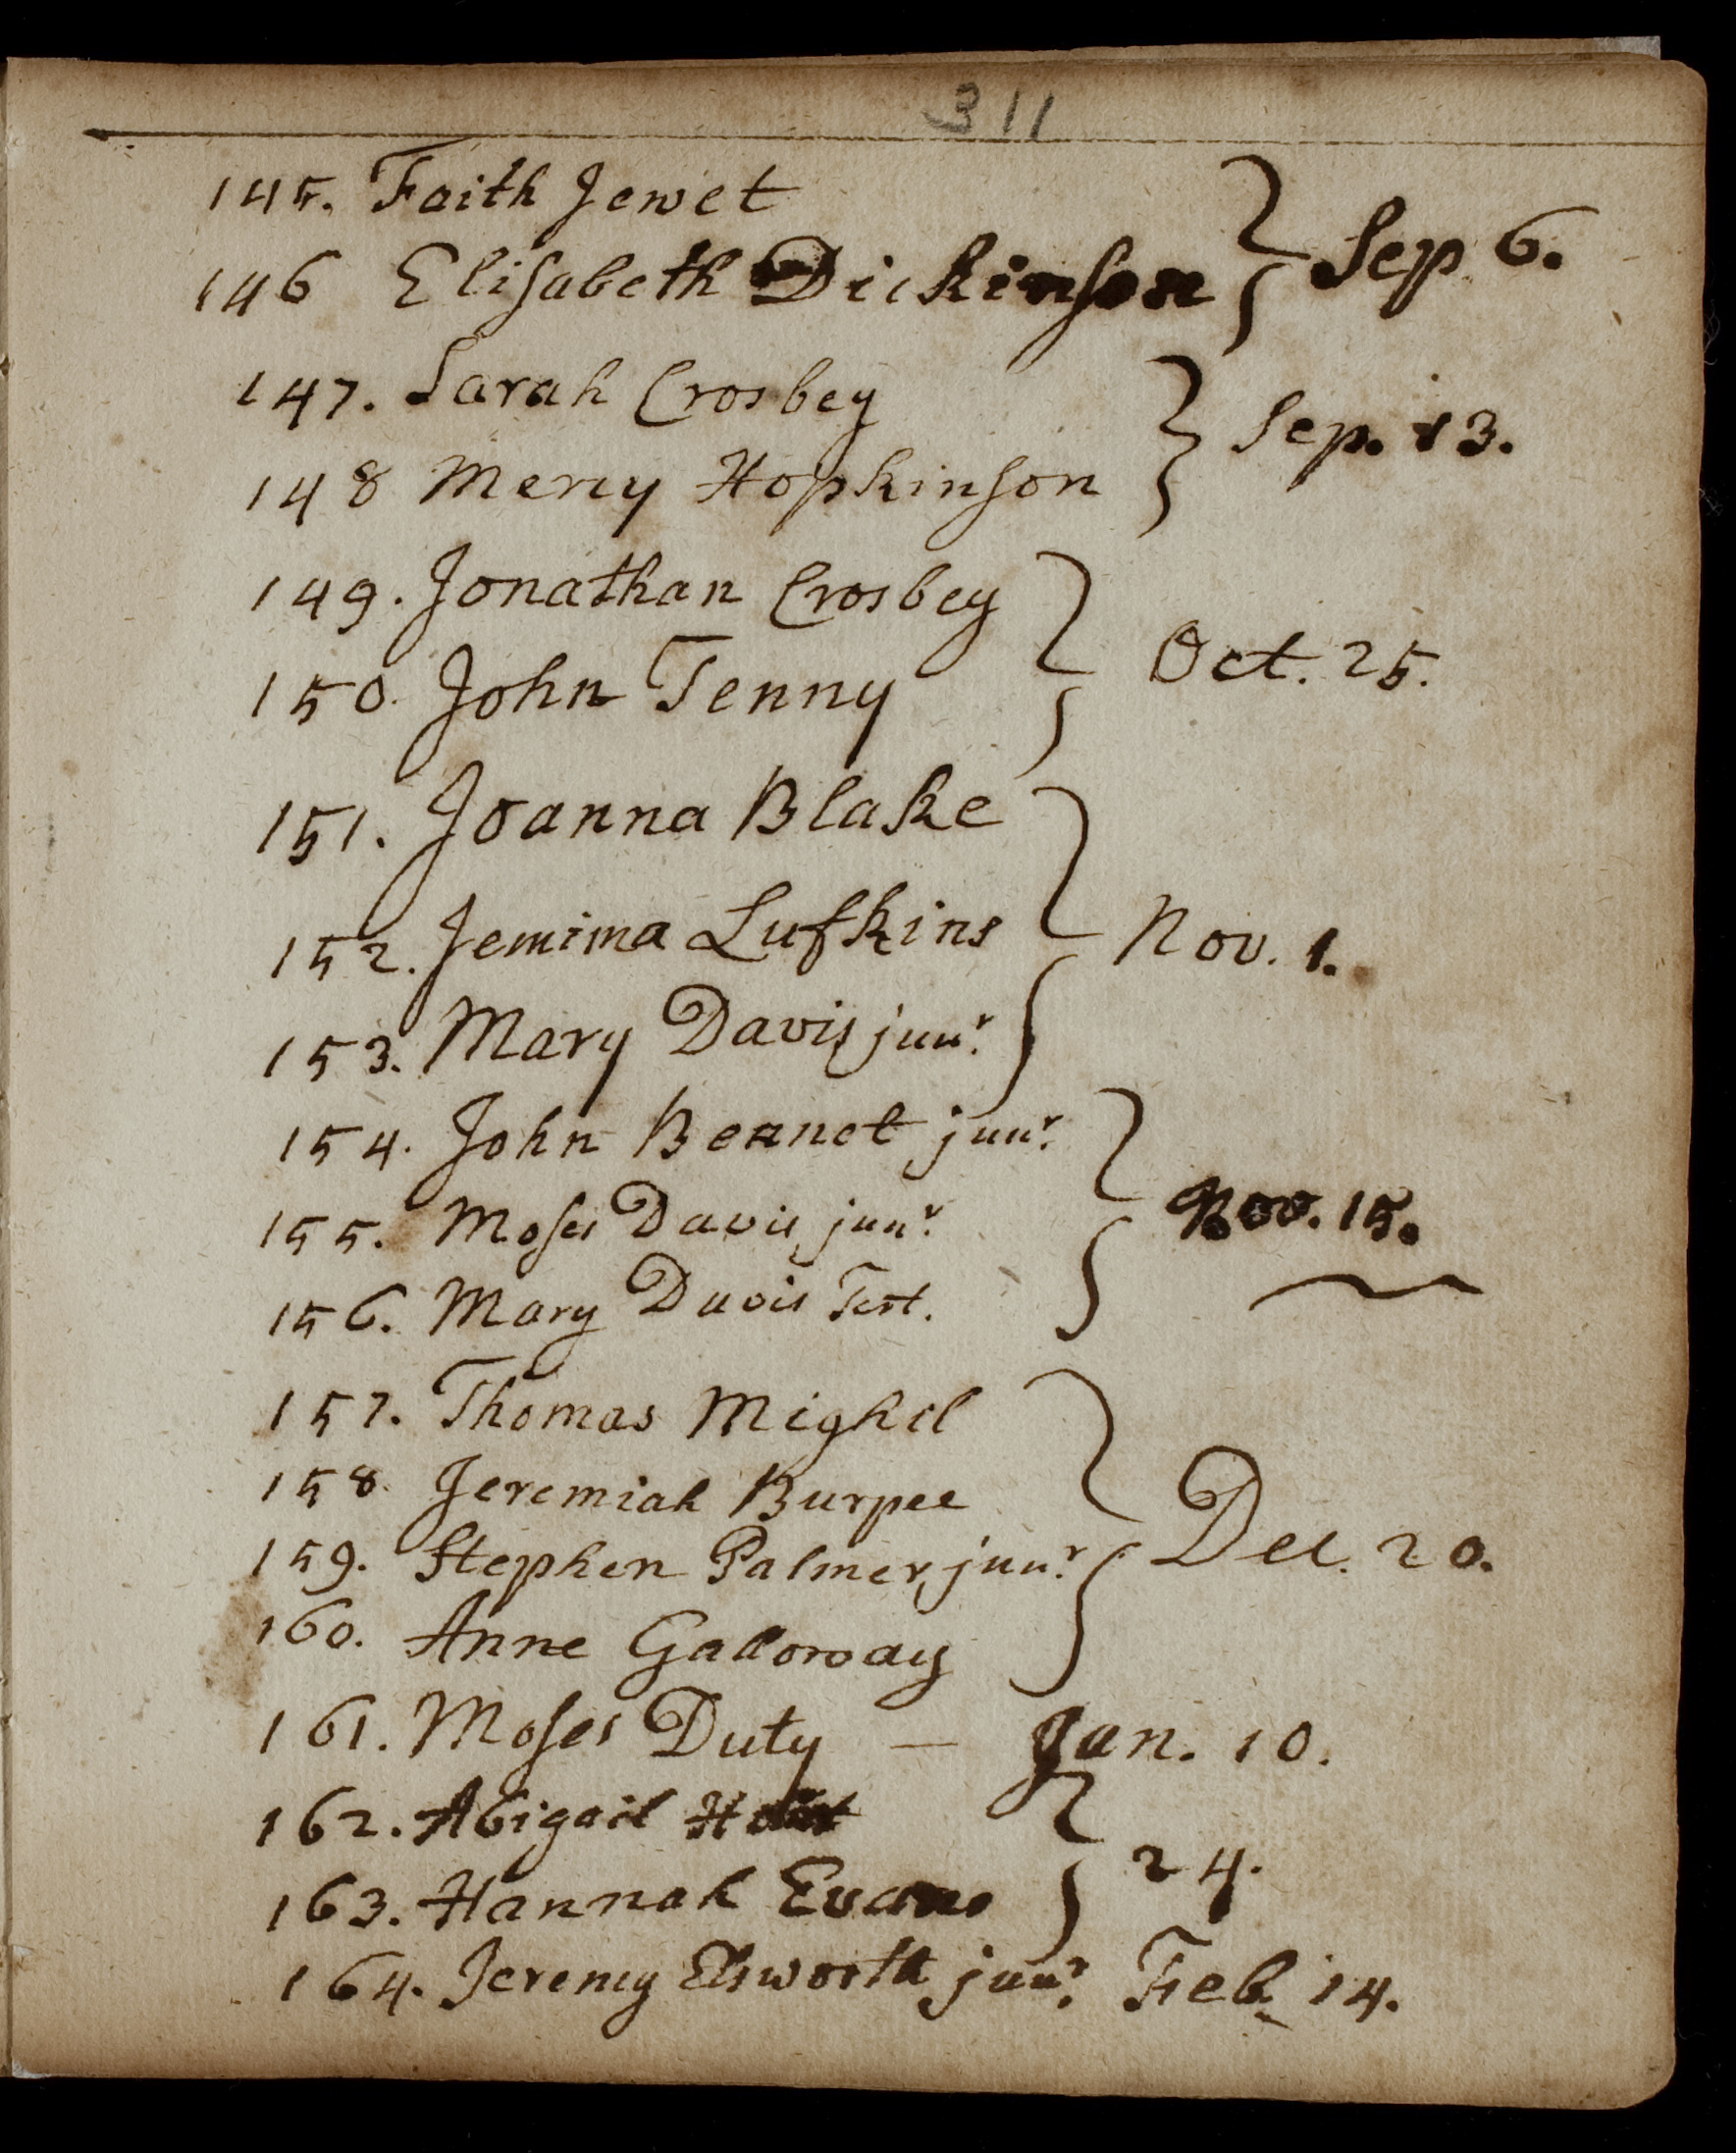 311
145. Faith Jewet
146 Elisabeth Dickinson } Sep 6.
147. Sarah Crosbey
148 Mercy Hopkinson } Sep. 13.
149. Jonathan Crosbey
150. John Tenny } Oct. 25.
151. Joanna Blake
152. Jemima Lufkins } Nov. 1.
153. Mary Davis junr.
154. John Bennet junr.
155. Moses Davis, junr. } Nov. 15.
156. Mary Davis Tert.
157. Thomas Mighil
158. Jeremiah Burpee
159. Stephen Palmer, junr. } Dec. 20.
160. Anne Galloway
161. Moses Duty — Jan. 10.
162. Abigail
163. Hannah Evans } 24.
164. Jeremy Elsworth junr. Feb. 14.